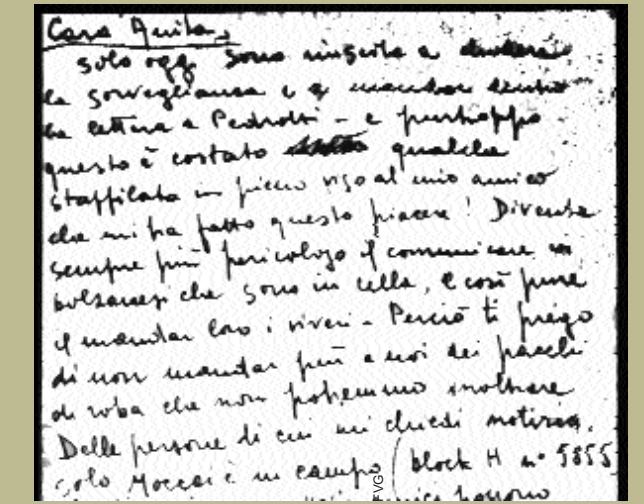 Cara Anita,
solo oggi sono riuscita a eludere
la sorveglianza e a mandar dentro
la lettera a Pedrotti - e purtroppo
questo è costato qualche
staffilata in pieno viso al mio amico
che mi ha fatto questo piacere! Diventa
sempre più pericoloso il comunicare
bolzanesi che sono in cella, e così pure
il mandar loro i viveri - Perciò ti prego
di non mandar più a noi dei pacchi
di roba che non potremmo inoltrare
Delle persone di cui mi chiedi notizia,
solo Moccai è in campo (block H n° 5855
FVG